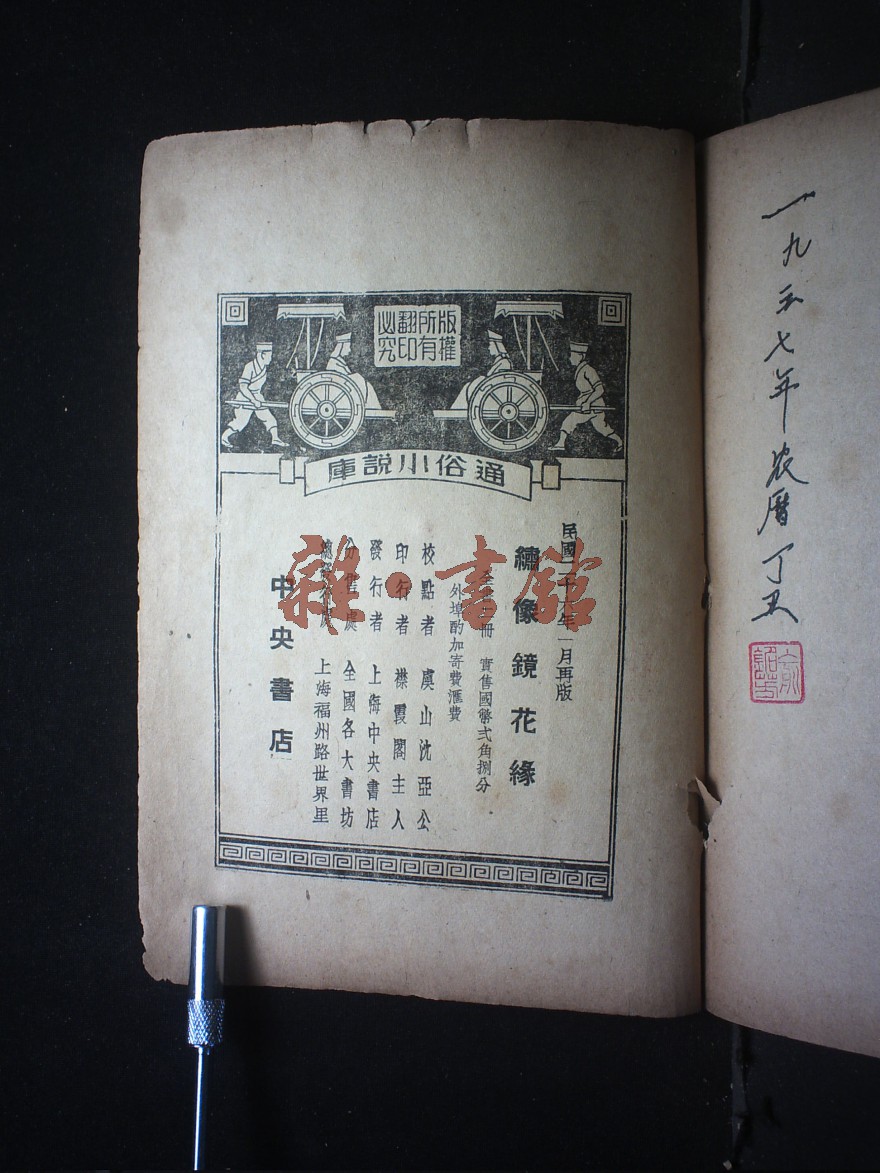 一九三七年农曆丁丑
版權所有翻印必究
通俗小說庫
民國二十六年一月再版
繡像鏡花緣
全 冊 實售國幣弍角捌分
外埠酌加寄費滙費
校點者 虞山沈亞公
印行者 襟霞閣主人
發行者 上海中央書店
分售處 全國各大書坊
總 上海福州路世界里
中央書店
雜·書館